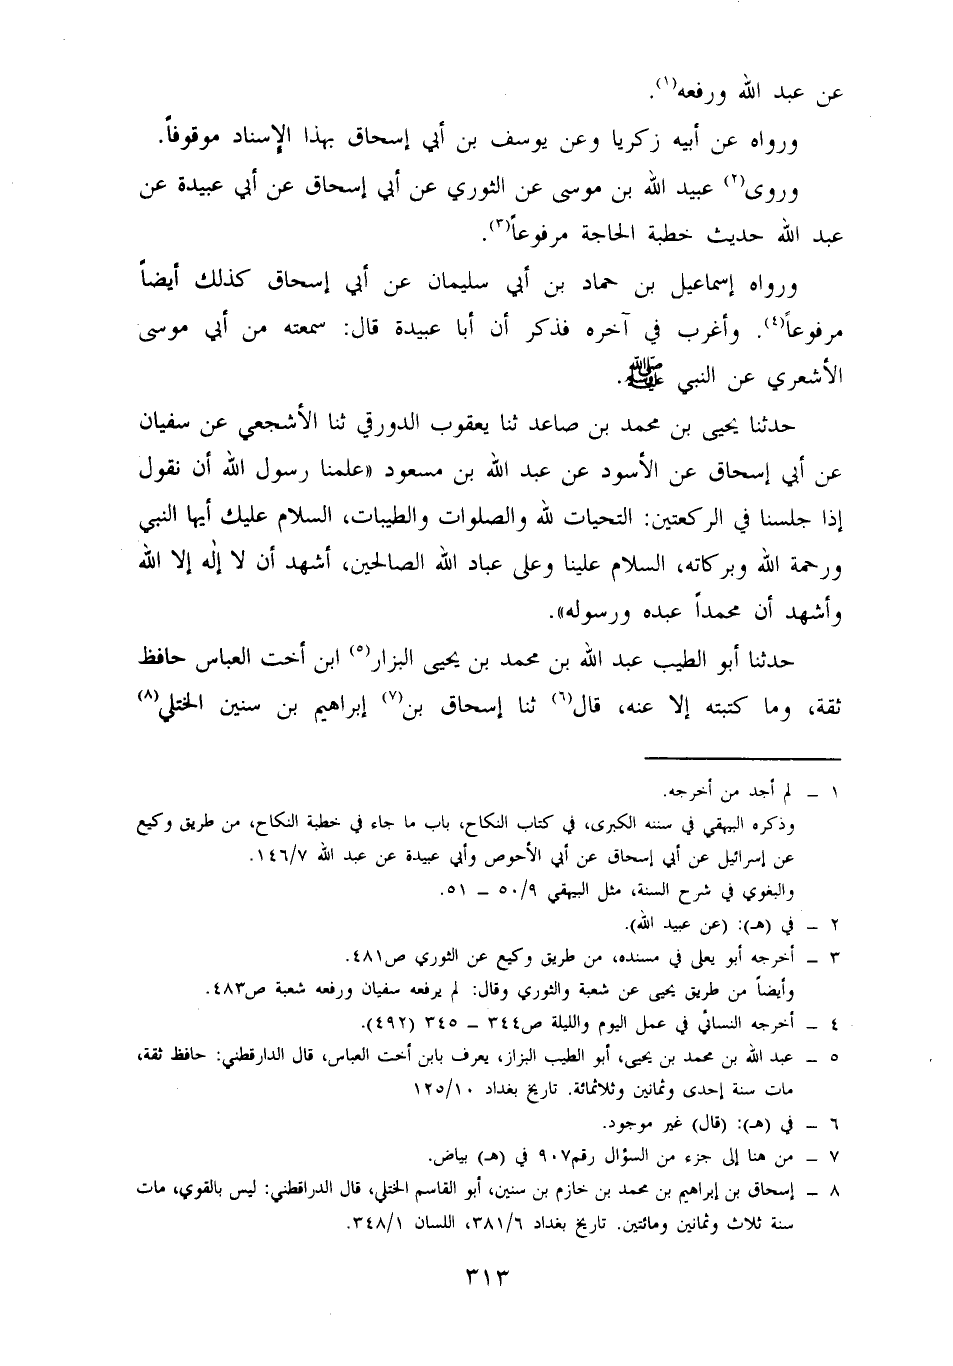 عن عبد الله ورفعه(١).
ورواه عن أبيه زكريا وعن يوسف بن أبي إسحاق بهذا الإسناد موقوفاً.
وروى(٢) عبيد الله بن موسى عن الثوري عن أبي إسحاق عن أبي عبيدة عن
عبد الله حديث خطبة الحاجة مرفوعاً(٣).
ورواه إسماعيل بن حماد بن أبي سليمان عن أبي إسحاق كذلك أيضاً
مرفوعاً(٤). وأغرب في آخره فذكر أن أبا عبيدة قال: سمعته من أبي موسى
الأشعري عن النبي ﷺ.
حدثنا يحيى بن محمد بن صاعد ثنا يعقوب الدورقي ثنا الأشجعي عن سفيان
عن أبي إسحاق عن الأسود عن عبد الله بن مسعود «علمنا رسول الله أن نقول
إذا جلسنا في الركعتين: التحيات لله والصلوات والطيبات، السلام عليك أيها النبي
ورحمة الله وبركاته، السلام علينا وعلى عباد الله الصالحين، أشهد أن لا إله إلا الله
وأشهد أن محمداً عبده ورسوله».
حدثنا أبو الطيب عبد الله بن محمد بن يحيى البزار(٥) ابن أخت العباس حافظ
ثقة، وما كتبته إلا عنه، قال(٦) ثنا إسحاق بن(٧) إبراهيم بن سنين الختلي(٨)
١ ـ لم أجد من أخرجه.
وذكره البيهقي في سننه الكبرى، في كتاب النكاح، باب ما جاء في خطبة النكاح، من طريق وكيع
عن إسرائيل عن أبي إسحاق عن أبي الأحوص وأبي عبيدة عن عبد الله ١٤٦/٧.
والبغوي في شرح السنة، مثل البيهقي ٥٠/٩ ـ ٥١.
٢ ـ في (هـ): (عن عبيد الله).
٣ ـ أخرجه أبو يعلى في مسنده، من طريق وكيع عن الثوري ص٤٨١.
وأيضاً من طريق يحيى عن شعبة والثوري وقال: لم يرفعه سفيان ورفعه شعبة ص٤٨٣.
٤ ـ أخرجه النسائي في عمل اليوم والليلة ص٣٤٤ ـ ٣٤٥ (٤٩٢).
٥ ـ عبد الله بن محمد بن يحيى، أبو الطيب البزاز، يعرف بابن أخت العباس، قال الدارقطني: حافظ ثقة،
مات سنة إحدى وثمانين وثلاثمائة. تاريخ بغداد ١٢٥/١٠
٦ ـ في (هـ): (قال) غير موجود.
٧ ـ من هنا إلى جزء من السؤال رقم٩٠٧ في (هـ) بياض.
٨ ـ إسحاق بن إبراهيم بن محمد بن خازم بن سنين، أبو القاسم الختلي، قال الدراقطني: ليس بالقوي، مات
سنة ثلاث وثمانين ومائتين. تاريخ بغداد ٣٨١/٦، اللسان ٣٤٨/١.
٣١٣